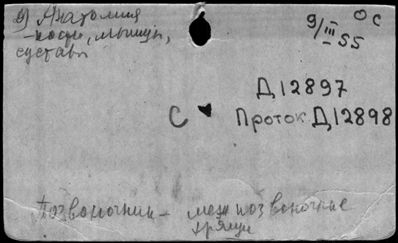 9) Анатомия
- кости, мышцы,
суставы
9/III 55
°C
Д12897
С Проток Д12898
Позвоночник - межпозвоночные
хрящи